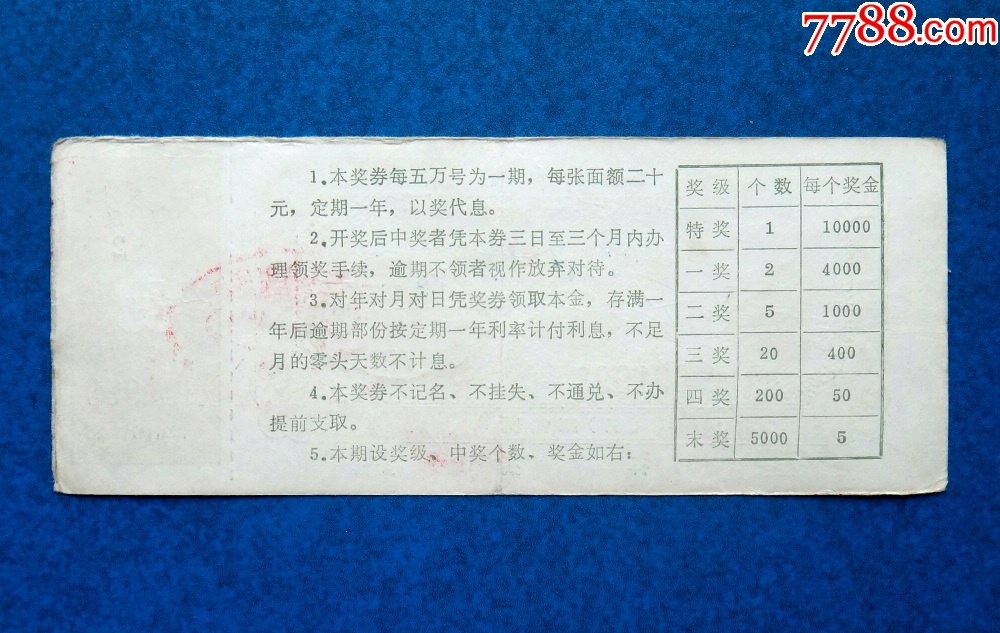 7788.com
1.本奖券每五万号为一期，每张面额二十
元，定期一年，以奖代息。
2.开奖后中奖者凭本券三日至三个月内办
理领奖手续，逾期不领者视作放弃对待。
3.对年对月对日凭奖券领取本金，存满一
年后逾期部份按定期一年利率计付利息，不足
月的零头天数不计息。
4.本奖券不记名、不挂失、不通兑、不办
提前支取。
5.本期设奖级、中奖个数、奖金如右：
奖级 个数 每个奖金
特奖 1 10000
一奖 2 4000
二奖 5 1000
三奖 20 400
四奖 200 50
末奖 5000 5